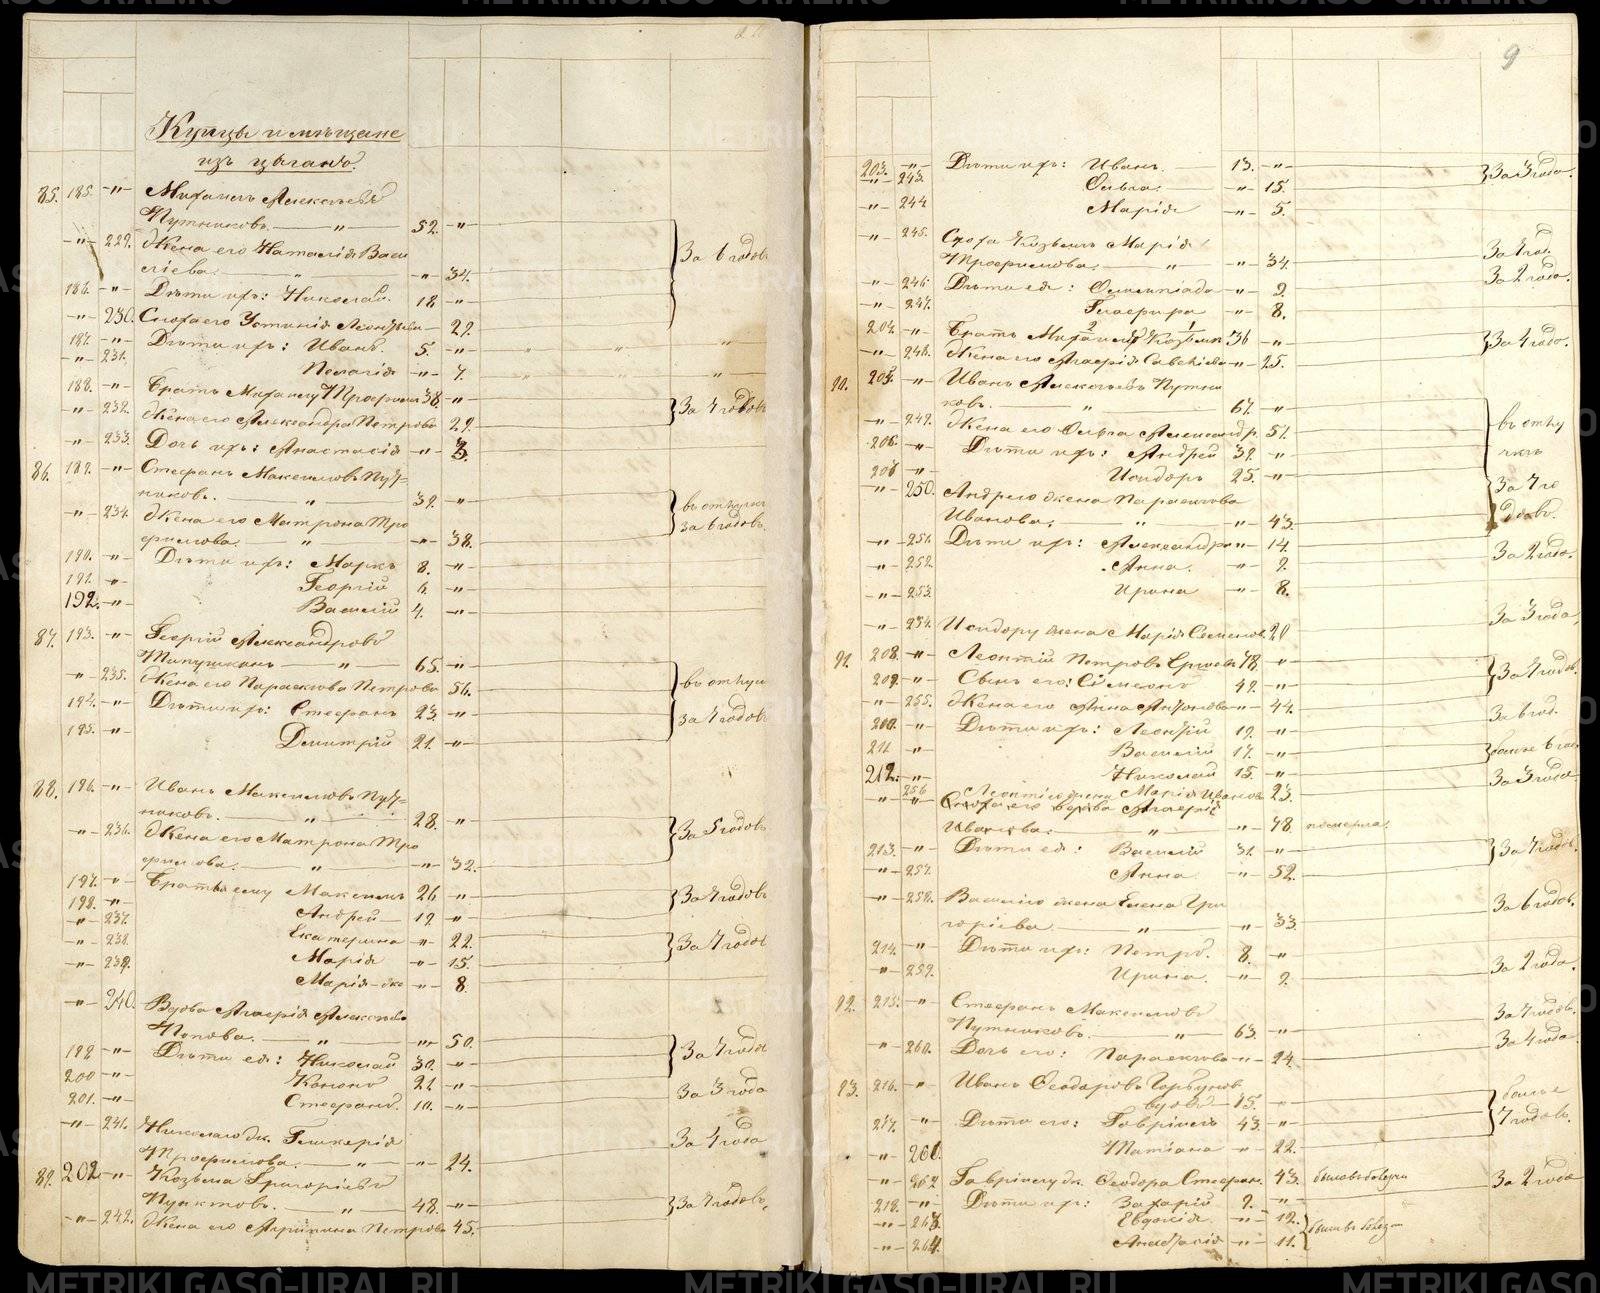 METRIKI.GASO-URAL.RU
9
Купцы и мѣщане
изъ цыганъ.
85. 185. -"- Михаилъ Алексѣевъ
Путниковъ. " 52. -"-
-"- 229. Жена его Наталія Васи
ліева. " -"- 34. За 6 годовъ
186. -"- Дѣти ихъ: Николай. 18 -"-
-"- 230. Сноха его Устинія Леонтьева 22.
187. -"- Дѣти ихъ: Иванъ. 5. -"-
-"- 231. Пелагія -"- 7.
188. -"- Братъ Михаилу Трофимъ 38. -"-
-"- 232. Жена его Александра Петрова 29. За 7 годовъ
-"- 233. Дочь ихъ: Анастасія -"- 3.
86. 189. -"- Стефанъ Максимовъ Пут=
никовъ. " 39. -"- въ отлучкѣ
-"- 234. Жена его Матрона Тро за 6 годовъ.
фимова. " -"- 38.
190. -"- Дѣти ихъ: Маркъ 8. -"-
191. -"- Георгій 6. -"-
192. -"- Василій 4. -"-
87. 193. -"- Георгій Александровъ
" 65. -"-
-"- 235. Жена его Параскева Петрова 56. въ отлуч
194. -"- Дѣти ихъ: Стефанъ 23. -"- за 7 годовъ
195. -"- Димитрій 21. -"-
88. 196. -"- Иванъ Максимовъ Пут=
никовъ. " 28. -"-
-"- 236. Жена его Матрона Тро За 5 годовъ
фимова. " -"- 32.
197. -"- Братья ему Максимъ 26 -"-
198. -"- Андрей 19 -"- За 7 годовъ
-"- 237. Екатерина -"- 22.
-"- 238. Марія -"- 15. За 7 годовъ
-"- 239. Марія-же -"- 8.
-"- 240. Вдова Агафія Алексѣева
Попова. " -"- 50.
199 -"- Дѣти ея: Николай 30. -"- За 7 годовъ
200 -"- Кононъ 21 -"-
201. -"- Стефанъ. 10. -"- За 3 года
-"- 241. Николаю ж. Гликерія
Трофимова. " -"- 24. За 4 года
89. 202 -"- Козьма Григорьевъ
" 48. -"- За 7 годовъ.
-"- 242. Жена его Петрова 45.
203. -"- Дѣти ихъ: Иванъ. 13. -"-
-"- 243. Ольга. -"- 15. За 3 года.
-"- 244 Марія -"- 5.
-"- 245. Сноха Козьмы Марія
Трофимова. " -"- 34. За 4 год.
-"- 246. Дѣти ея: Олимпіада -"- 9. За 2 года.
-"- 247. Глафира -"- 8.
204. -"- Братъ Михаилъ Козьминъ 36 -"-
-"- 248. Жена его Агафія Савельева -"- 25. За 4 года.
90. 205. -"- Иванъ Алексѣевъ Путни
ковъ. " 67. -"-
-"- 249. Жена его Ольга Александр. 57. въ отлу
206. " Дѣти ихъ: Андрей 39. -"- чкѣ
207 -"- Исидоръ 25. -"-
-"- 250. Андрею жена Параскева За 7 го
Иванова. " -"- 43. довъ.
-"- 251. Дѣти ихъ: Александра -"- 14.
-"- 252. Анна. -"- 9. За 2 года.
-"- 253. Ирина -"- 8.
-"- 254. Исидору жена Марія Семенов. 20 За 3 года,
91. 208. -"- Леонтій Петровъ 78. -"-
209. -"- Сынъ его: Симеонъ 49. -"- За 7 годов.
-"- 255. Жена его Анна Антонова -"- 44. За 6 год.
210. -"- Дѣти ихъ: Леонтій 19. -"-
211 -"- Василій 17. -"- болѣе 6 год.
212. -"- Николай 15. -"- За 3 года
256 Леонтію жена Марія Иванов. 23.
-"- -"- Сноха его вдова Агафія
Иванова. " -"- 48. померла.
213. -"- Дѣти ея: Василій 31. -"-
-"- 257. Анна. -"- 52. За 7 годов.
-"- 258. Василію жена Елена Гри
горіева. " -"- 33. За 6 годов.
214. -"- Дѣти ихъ: Петръ. 8. -"-
-"- 259. Ирина. -"- 9. За 2 года.
92. 215. -"- Стефанъ Максимовъ
Путниковъ. " 63. -"- За 7 годов.
-"- 260. Дочь его: Параскева -"- 24. За 4 года.
93. 216. -"- Иванъ Ѳеодоровъ Горбуновъ
вдовъ 75. -"- болѣе
217. -"- Дѣти его: Гавріилъ 43 -"- 7 годов.
-"- 261. Татіана -"- 22.
-"- 262 Гавріилу ж. Ѳеодора Стефан. 43. За 2 года
218. -"- Дѣти их: Захарій 9. -"-
-"- 263. Евдокія. -"- 12.
-"- 264. Анастасія -"- 11.